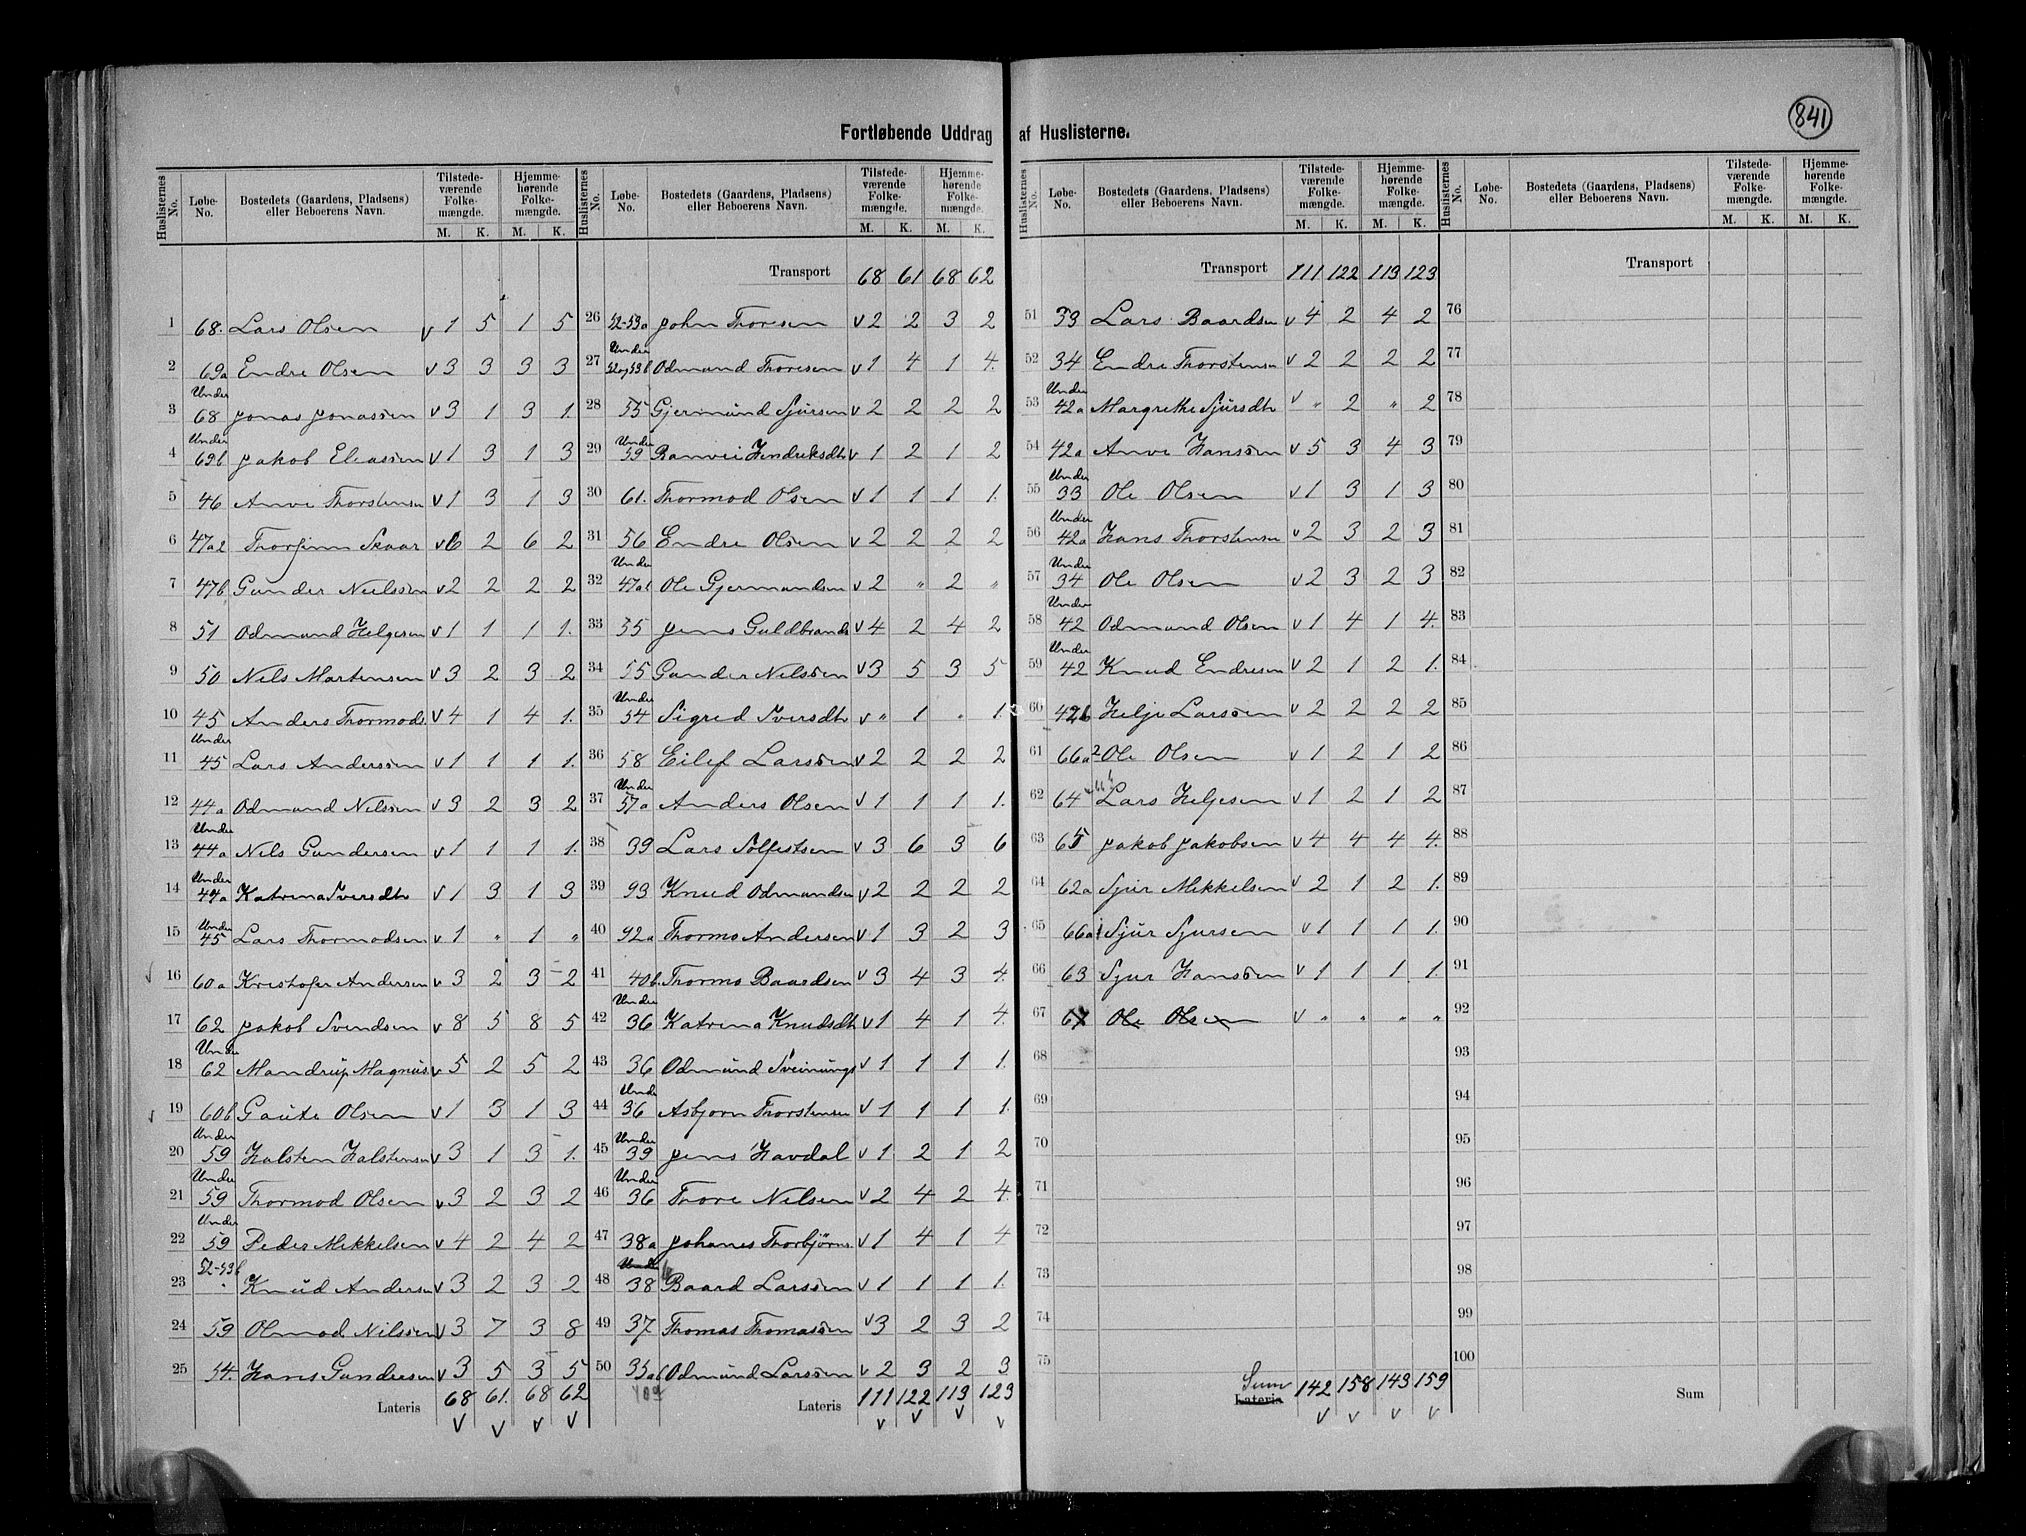 841
Fortløbende Uddrag af Huslisterne.
Huslisternes No. Løbe-No. Bostedets (Gaardens, Pladsens) eller Beboerens Navn. Tilstedeværende Folkemængde. M. K. Hjemmehørende Folkemængde. M. K.
1 68. Lars Olsen v 1 5 1 5
2 69a Endre Olsen v 3 3 3 3
3 Under 68 Jonas Jonassen v 3 1 3 1.
4 Under 69b Jakob Eliassen v 1 3 1 3
5 46 Anve Thorstensen v 1 3 1 3
6 47a2 Thorfinn Skaar v 6 2 6 2
7 47b Gunder Neelssen v 2 2 2 2
8 51 Odmund Helgesen v 1 1 1 1.
9 50 Nels Martensen v 3 2 3 2
10 45 Anders Thormods. v 4 1 4 1.
11 Under 45 Lars Anderssen v 1 1 1 1.
12 44a Odmund Nelssen v 3 2 3 2
13 Under 44a Nels Gundersen v 1 1 1 1.
14 Under 44a Katrina Iversdtr v 1 3 1 3
15 Under 45 Lars Thormodsen v 1 " 1 "
16 60a Kristofer Andersen v 3 2 3 2
17 62 Jakob Svendsen v 8 5 8 5
18 Under 62 Mandrup Magnus. v 5 2 5 2
19 60b Gaute Olsen v 1 3 1 3
20 Under 59 Halsten Halstensen v 3 1 3 1.
21 Under 59 Thormod Olsen v 3 2 3 2
22 Under 59 Peder Mikkelsen v 4 2 4 2
23 52-53b Knud Andersen v 3 2 3 2
24 59 Olmod Nilssen v 3 7 3 8
25 54. Hans Gundersen v 3 5 3 5
Lateris 68 61. 68 62
v v v v
Huslisternes No. Løbe-No. Bostedets (Gaardens, Pladsens) eller Beboerens Navn. Tilstedeværende Folkemængde. M. K. Hjemmehørende Folkemængde. M. K.
Transport 68 61 68 62
26 52-53a John Thoresen v 2 2 3 2
27 Under 52 og 53b Odmund Thoresen v 1 4 1 4.
28 55 Gjermund Sjursen v 2 2 2 2
29 Under 59 Ranvei Hendriksdtr v 1 2 1 2
30 61. Thormod Olsen v 1 1 1 1.
31 56 Endre Olsen v 2 2 2 2
32 Under 47a1 Ole Gjermundsen v 2 " 2 "
33 55 Jens Guldbrands v 4 2 4 2
34 55 Gunder Nelssen v 3 5 3 5
35 Under 54 Sigred Iversdtr v " 1 " 1.
36 58 Eilef Larssen v 2 2 2 2
37 Under 57a Anders Olsen v 1 1 1 1.
38 39 Lars Solfestsen v 3 6 3 6
39 93 Knud Odmundsen v 2 2 2 2
40 92a Thormo Andersen v 1 3 2 3
41 40b. Thormo Baardsen v 3 4 3 4.
42 Under 36 Katrina Knudsdtr v 1 4 1 4.
43 36 Odmund Sveinungs v 1 1 1 1.
44 Under 36 Asbjorn Thorstensen v 1 1 1 1.
45 Under 39 Jens Havdal v 1 2 1 2
46 Under 36 Thore Nelsen v 2 4 2 4.
47 38a Johanes Thorbjørns. v 1 4 1 4
48 Under 38 b Baard Larssen v 1 1 1 1.
49 37 Thomas Thomassen v 3 2 3 2
50 35ab Odmund Larssen v 2 3 2 3
Lateris 111 122 113 123
v v v v
Huslisternes No. Løbe-No. Bostedets (Gaardens, Pladsens) eller Beboerens Navn. Tilstedeværende Folkemængde. M. K. Hjemmehørende Folkemængde. M. K.
Transport 111 122 113 123
51 33 Lars Baardsen v 4 2 4 2
52 34 Endre Thorstensen v 2 2 2 2
53 Under 42a Margrethe Sjursdtr v " 2 " 2
54 42a Anve Hanssen v 5 3 4 3
55 Under 33 Ole Olsen v 1 3 1 3
56 Under 42a Hans Thorstensen v 2 3 2 3
57 Under 34 Ole Olsen v 2 3 2 3
58 Under 42 Odmund Olsen v 1 4 1 4.
59 Under 42 Knud Endresen v 2 1 2 1.
60 42b Helje Larssen v 2 2 2 2
61 66a2 Ole Olsen v 1 2 1 2
62 64 Lars Heljesen v 1 2 1 2
63 65 Jakob Jakobsen v 4 4 4 4.
64 62a Sjur Mikkelsen v 2 1 2 1.
65 66a1 Sjur Sjursen v 1 1 1 1.
66 63 Sjur Hanssen v 1 1 1 1.
67 67 Ole Olsen v " " " "
68
69
70
71
72
73
74
75
Sum Lateris 142 158 143 159
v v v v
Huslisternes No. Løbe-No. Bostedets (Gaardens, Pladsens) eller Beboerens Navn. Tilstedeværende Folkemængde. M. K. Hjemmehørende Folkemængde. M. K.
Transport
76
77
78
79
80
81
82
83
84
85
86
87
88
89
90
91
92
93
94
95
96
97
98
99
100
Sum